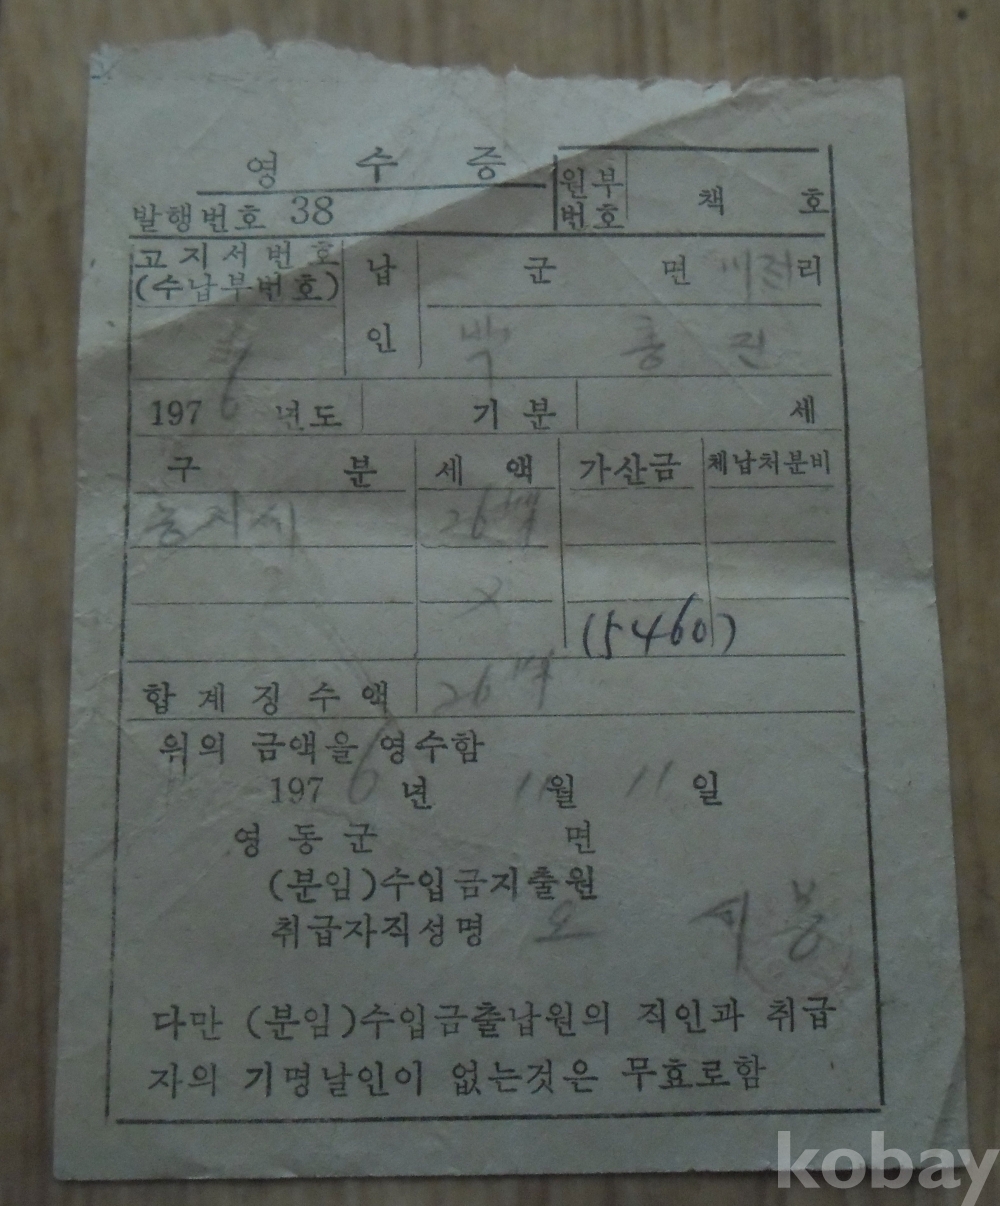 영 수 증
원부번호 책 호
발행번호 38
고지서번호 납 군 면 리
(수납부번호)
인 박 흥 진
1976 년도 기분 세
구 분 세 액 가산금 체납처분비
농지세 26
(5460)
합계징수액 26
위의 금액을 영수함
1976 년 11월 11일
영동군 면
(분임)수입금지출원
취급자직성명 오
다만 (분임)수입금출납원의 직인과 취급
자의 기명날인이 없는것은 무효로함
kobay